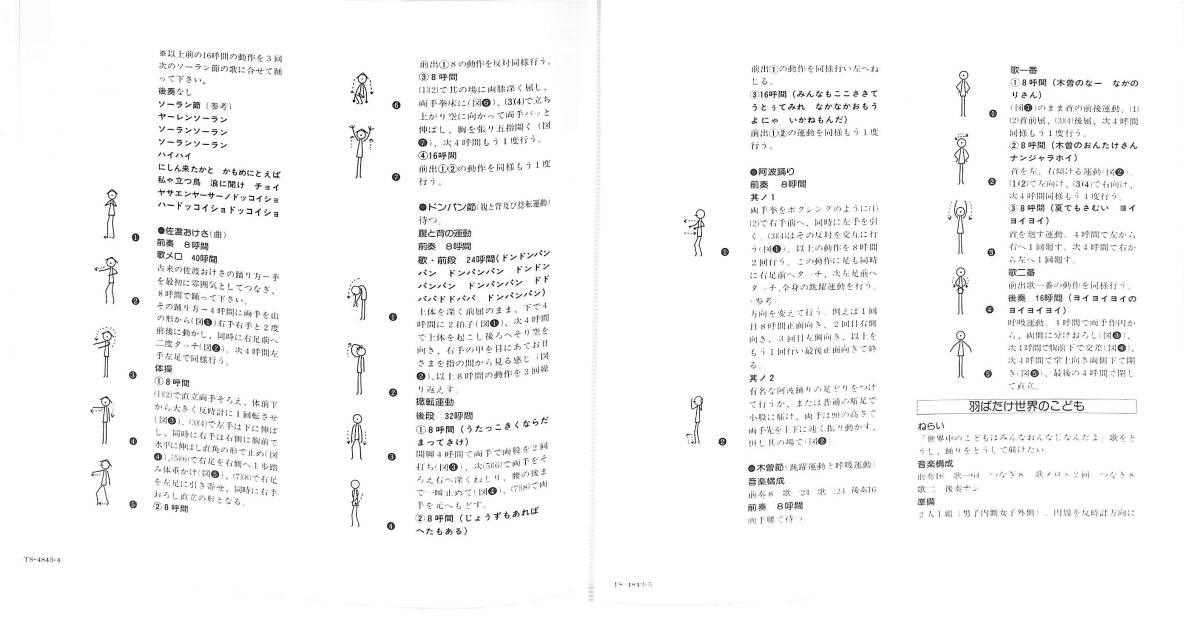 ※以上前の16呼間の動作を3回
次のソーラン節の歌に合せて踊
って下さい。
後奏なし
ソーラン節(参考)
ヤーレンソーラン
ソーランソーラン
ソーランソーラン
ハイハイ
にしん来たかと かもめにとえば
私ゃ立つ鳥 浪に聞け チョイ
ヤサエンヤーサーノドッコイショ
ハードッコイショドッコイショ
●佐渡おけさ(曲)
前奏 8呼間
歌メロ 40呼間
古来の佐渡おけさの踊り方一手
を最初に雰囲気としてつなぎ、
8呼間で踊って下さい。
その踊り方ー4呼間に両手を山
の形から(図❶)右手右手と2度
前後に動かし、同時に右足前へ
二度タッチ(図❷)。次4呼間左
手左足で同様行う。
体操
①8呼間
(1)(2)で直立両手そろえ、体前下
から大きく反時計に1回転させ
(図❸)、(3)(4)で左手は下に伸ば
し、同時に右手は右側に胸前で
水平に伸ばし直角の形で止め(図
❹)、(5)(6)で右足を右側へ1歩踏
み体重かけ(図❺)、(7)(8)で右足
を左足に引き寄せ、同時に右手
おろし直立の形となる。
②8呼間
❶
❷
❸
❹
❺
TS-4843-4
前出①8の動作を反対同様行う。
③8呼間
(1)(2)で其の場に両膝深く屈し、
両手拳床に(図❻)、(3)(4)で立ち
上がり空に向かって両手パッと
伸ばし、胸を張り五指開く(図
❼)、次4呼間もう1度行う。
④16呼間
前出①②の動作を同様もう1度
行う。
●ドンパン節(腹と背及び捻転運動)
待つ。
腹と背の運動
前奏 8呼間
歌・前段 24呼間(ドンドンパン
パン ドンパンパン ドンドン
パンパン ドンパンパン ドド
パパドドパパ ドンパンパン)
上体を深く前屈のまま、下で4
呼間に2拍子(図❶)、次4呼間
で上体を起こし後ろへそり空を
向き、右手の甲を目にあてお日
さまを指の間から見る感じ(図
❷)、以上8呼間の動作を3回繰
り返えす。
捻転運動
後段 32呼間
①8呼間(うたっこきくならだ
まってきけ)
開脚4呼間で両手で両股を2回
打ち(図❸)、次(5)(6)で両手をそ
ろえ右へ深くねじり、腰の後ま
で一瞬止めて(図❹)、(7)(8)で両
手を元へもどす。
②8呼間(じょうずもあれば
へたもある)
❻
❼
❶
❷
❸
❹
前出①の動作を同様行い左へね
じる。
③16呼間(みんなもここさきて
うとぅてみれ なかなかおもう
よにゃ いかねもんだ)
前出①②の運動を同様もう1度
行う。
●阿波踊り
前奏 8呼間
其ノ1
両手拳をボクシングのように(1)
(2)で右手前へ、同時に左手を引
く、(3)(4)はその反対を交互に行
う(図❶)。以上の動作を8呼間
2回行う。この動作に足も同時
に右足前へタッチ、次左足前へ
タッチ、全身の跳躍運動を行う。
(参考)
方向を変えて行う。例えば1回
目8呼間正面向き、2回目右側
向き、3回目左側向き、以上を
もう1回行い最後正面向きで終
る。
其ノ2
有名な阿波踊りの足どりをつけ
て行うか、または普通の駈足で
小股に駈け、両手は頭の高さで
両手先を上下に速く振り動かす、
但し其の場で(図❷)。
●木曽節(跳躍運動と呼吸運動)
音楽構成
前奏8 歌一24 歌二24 後奏16
前奏 8呼間
両手腰で待つ
❶
❷
TS-4843-5
歌一番
①8呼間(木曽のなー なかの
りさん)
(図❶)のまま首の前後運動。(1)
(2)首前屈、(3)(4)後屈、次4呼間
同様もう1度行う。
②8呼間(木曽のおんたけさん
ナンジャラホイ)
首を左、右傾ける運動(図❷)。
(1)(2)で左向け、(3)(4)で右向け、
次4呼間同様もう1度行う。
③8呼間(夏でもさむい ヨイ
ヨイヨイ)
首を廻す運動。4呼間で左から
右へ1回廻す。次4呼間で右か
ら左へ1回廻す。
歌二番
前出歌一番の動作を同様行う。
後奏 16呼間(ヨイヨイヨイの
ヨイヨイヨイ)
呼吸運動。4呼間で両手作円か
ら、両側に分けおろし(図❸)、
次4呼間で胸前下で交差(図❹)、
次4呼間で掌上向き両側下で開
き(図❺)、最後の4呼間で閉じ
て直立。
❶
❷
❸
❹
❺
羽ばたけ世界のこども
ねらい
「世界中のこどもはみんなおんなじなんだよ」歌をと
うし、踊りをとうして躾けたい。
音楽構成
前奏16 歌一64 つなぎ8 歌メロ×2回 つなぎ8
歌二 後奏ナシ
準備
2人1組(男子内側女子外側)。円周を反時計方向に